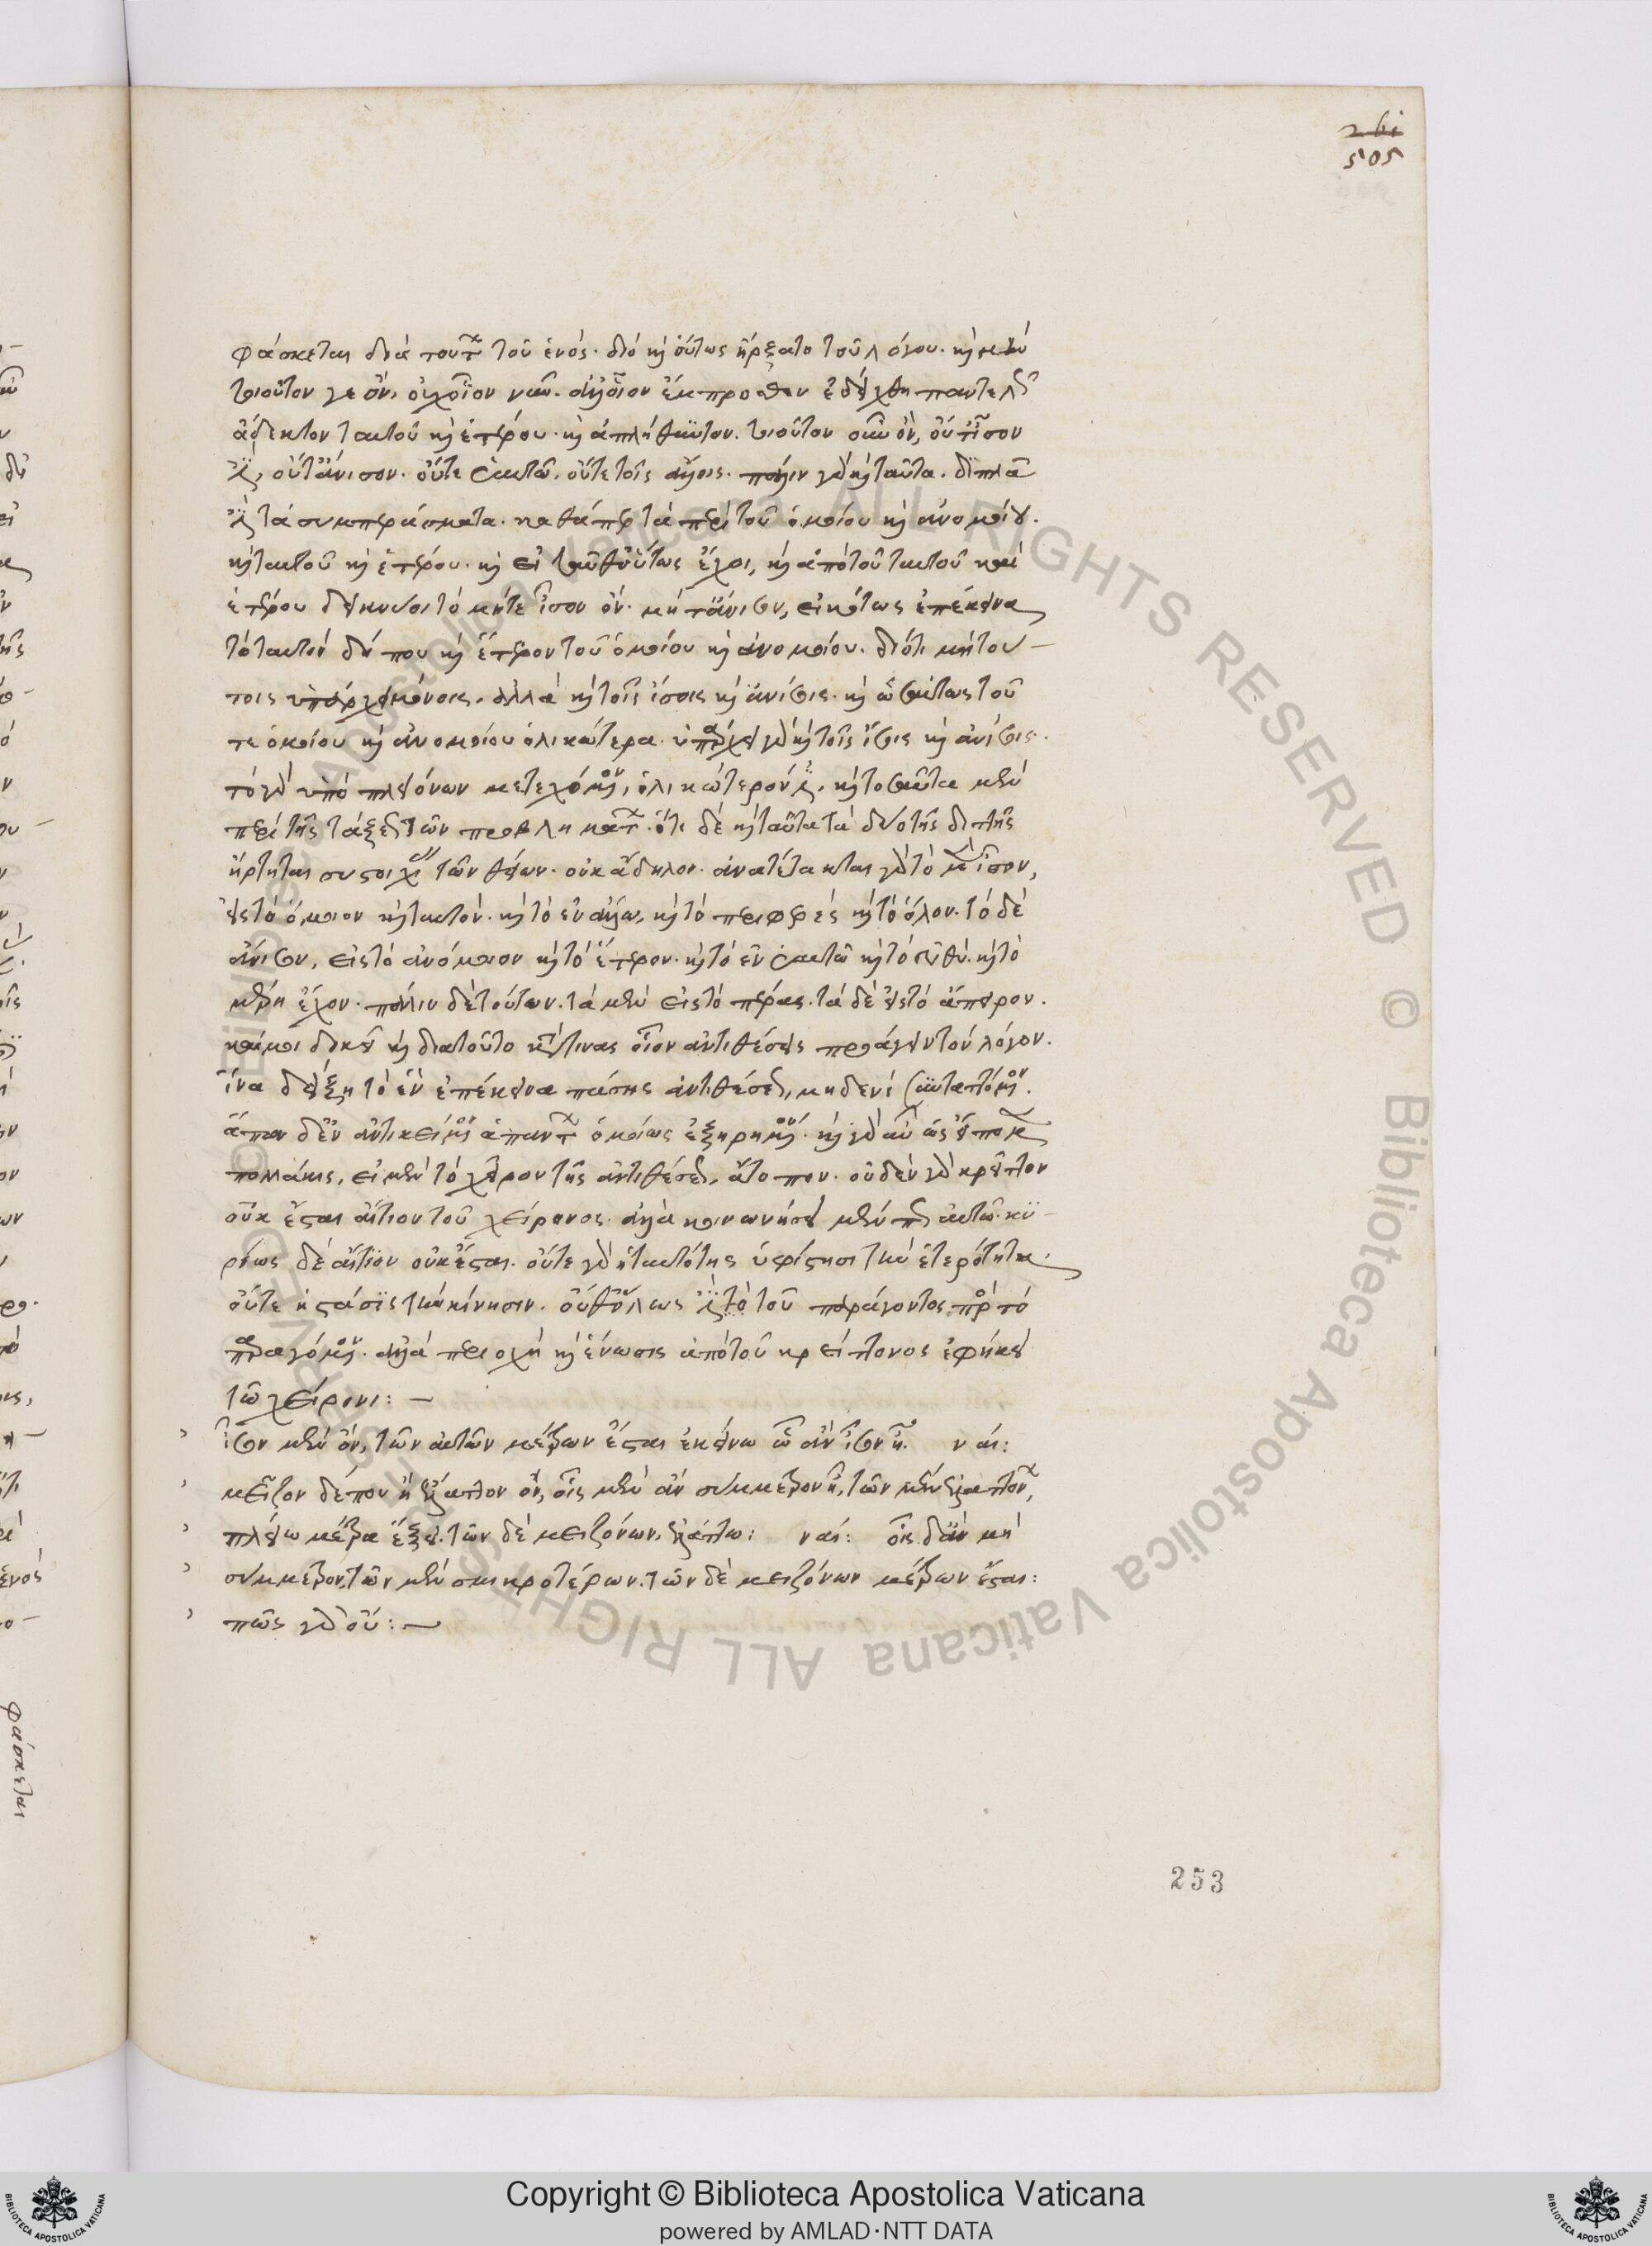 2bi
505
φάσκεται διὰ τούτων τοῦ ἑνός. διὸ καὶ οὕτως ἤρξατο τοῦ λόγου. καὶ μὴν
τοιοῦτόν γε ὄν, οὐχ οἷον νῦν. ἀλλ' οἷον ἔμπροσθεν ἐδείχθη παντελῶς
ἄδεκτον ταυτοῦ καὶ ἑτέρου. καὶ ἀπλήθυντον. τοιοῦτον οὖν ὄν, οὔτ' ἴσον
ἐστὶν, οὔτ' ἄνισον. οὔτε ἑαυτῶ, οὔτε τοῖς ἄλλοις. πάλιν γὰρ καὶ ταῦτα. διπλᾶ
ἐστὶ τὰ συμπεράσματα. καθάπερ τὰ περὶ τοῦ ὁμοίου καὶ ἀνομοίου.
καὶ ταυτοῦ καὶ ἑτέρου. καὶ εἰ ταῦθ' οὕτως ἔχοι, καὶ ἀπὸ τοῦ ταυτοῦ καὶ
ἑτέρου δείκνυσι τὸ μήτε ἴσον ὄν. μήτ' ἄνισον, εἰκότως ἐπέκεινα
τὸ ταυτὸν δή που καὶ ἕτερον τοῦ ὁμοίου καὶ ἀνομοίου. διότι μὴ του–
τοις ὑπάρχει μόνοις. ἀλλὰ καὶ τοῖς ἴσοις καὶ ἀνίσοις. καὶ ὡσαύτως τοῦ
τε ὁμοίου καὶ ἀνομοίου ὁλικώτερα. ὑπάρχει γὰρ καὶ τοῖς ἴσοις καὶ ἀνίσοις.
τὸ γὰρ ὑπὸ πλειόνων μετεχόμενον, ὁλικώτερόν ἐστι. καὶ τοσαῦτα μὲν
περὶ τῆς τάξεως τῶν προβλημάτων. ὅτι δὲ καὶ ταῦτα τὰ δύο τῆς διττῆς
ἤρτηται συστοιχίας τῶν θείων. οὐκ ἄδηλον. ἀνατέταται γὰρ τὸ μὲν ἴσον,
εἰς τὸ ὅμοιον καὶ ταυτόν. καὶ τὸ ἐν ἄλλω, καὶ τὸ περιφερὲς καὶ τὸ ὅλον. τὸ δὲ
ἄνισον, εἰς τὸ ἀνόμοιον καὶ τὸ ἕτερον. καὶ τὸ ἐν ἑαυτῶ καὶ τὸ εὐθύ. καὶ τὸ
μέρη ἔχον. πάλιν δὲ τούτων. τὰ μὲν εἰς τὸ πέρας. τὰ δὲ εἰς τὸ ἄπειρον.
καί μοι δοκεῖ καὶ διὰ τοῦτο κατά τινας οἷον ἀντιθέσεις προάγειν τὸν λόγον.
ἵνα δείξη τὸ ἓν ἐπέκεινα πάσης ἀντιθέσεως, μηδενὶ συνταττόμενον.
ἅπαν δ' ἓν ἀντικείμενον ἁπάντων ὁμοίως ἐξηρημένον. καὶ γὰρ ἂν ὡς εἴπομεν
πολλάκις, εἰ μὲν τὸ χεῖρον τῆς ἀντιθέσεως, ἄτοπον. οὐδὲν γὰρ κρεῖττον
οὐκ ἔσται αἴτιον τοῦ χείρονος. ἀλλὰ κοινωνήσει μέν πως αὐτῶ. κυ–
ρίως δὲ αἴτιον οὐκ ἔσται. οὔτε γὰρ ἡ ταυτότης ὑφίστησι τὴν ἑτερότητα.
οὔτε ἡ στάσις τὴν κίνησιν. οὔθ' ὅλως ἐστὶ τὸ τοῦ παράγοντος πρὸς τὸ
παραγόμενον. ἀλλὰ περιοχὴ καὶ ἕνωσις ἀπὸ τοῦ κρείττονος ἐφήκει
τῶ χείρονι: –
ἴσον μὲν ὄν, τῶν αὐτῶν μέτρων ἔσται ἐκείνω ὧ ἂν ἴσον ἦ. ναί:
μεῖζον δέ που ἢ ἔλαττον ὄν, οἷς μὲν ἂν σύμμετρον ἦ, τῶν μὲν ἐλαττόνων,
πλείω μέτρα ἕξει. τῶν δὲ μειζόνων, ἐλάττω: ναί: οἷς δ' ἂν μὴ
σύμμετρον, τῶν μὲν σμικροτέρων. τῶν δὲ μειζόνων μέτρων ἔσται:
πῶς γὰρ οὔ: –
φάσκεται
253
Copyright © Biblioteca Apostolica Vaticana
powered by AMLAD·NTT DATA